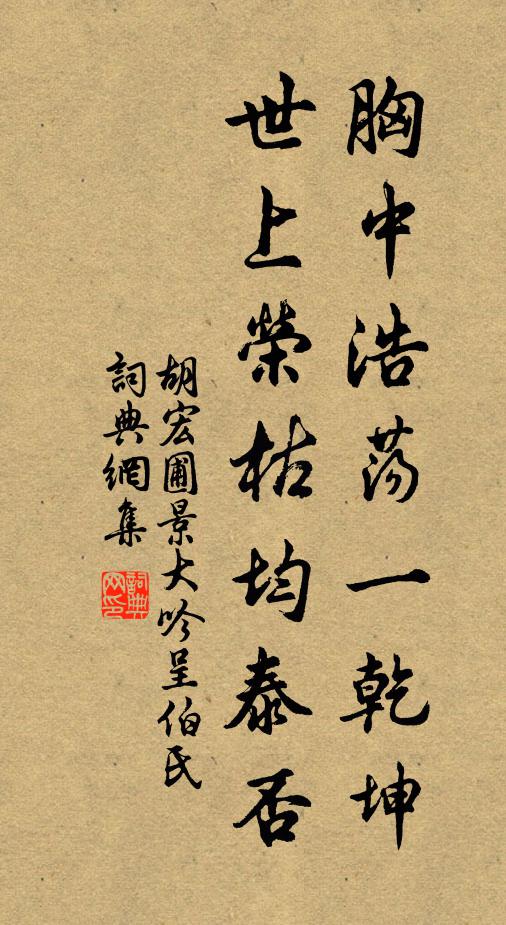 胸中浩荡一乾坤
世上榮枯均泰否
胡宏圃景大吟呈伯氏
詞典網集
詞典网印